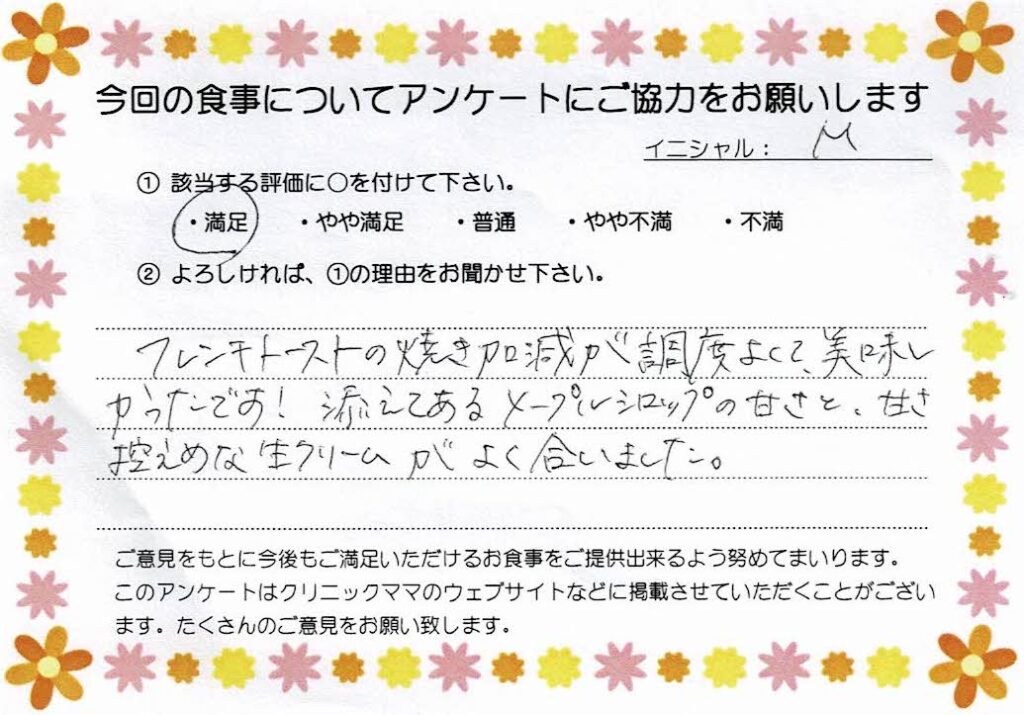 今回の食事についてアンケートにご協力をお願いします
イニシャル： M
① 該当する評価に○を付けて下さい。
・満足 ・やや満足 ・普通 ・やや不満 ・不満
② よろしければ、①の理由をお聞かせ下さい。
フレンチトーストの焼き加減が調度よくて、美味し
かったです！ 添えてあるメープルシロップの甘さと、甘さ
控えめな生クリームがよく合いました。
ご意見をもとに今後もご満足いただけるお食事をご提供出来るよう努めてまいります。
このアンケートはクリニックママのウェブサイトなどに掲載させていただくことがござい
ます。たくさんのご意見をお願い致します。